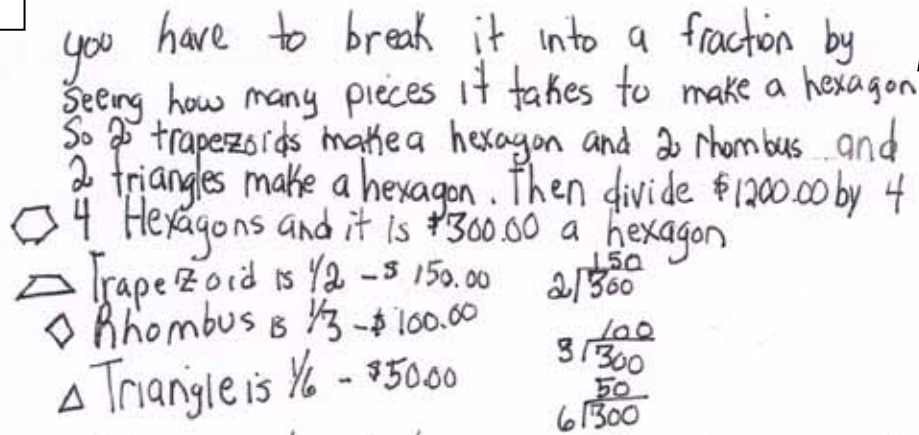 you have to break it into a fraction by
Seeing how many pieces it takes to make a hexagon,
So 2 trapezoids make a hexagon and 2 rhombus and
2 triangles make a hexagon. Then divide $1200.00 by 4
4 Hexagons and it is $300.00 a hexagon
Trapezoid is 1/2 - $ 150.00
150
2/300
Rhombus is 1/3 - $100.00
100
3/300
Triangle is 1/6 - $50.00
50
6/300